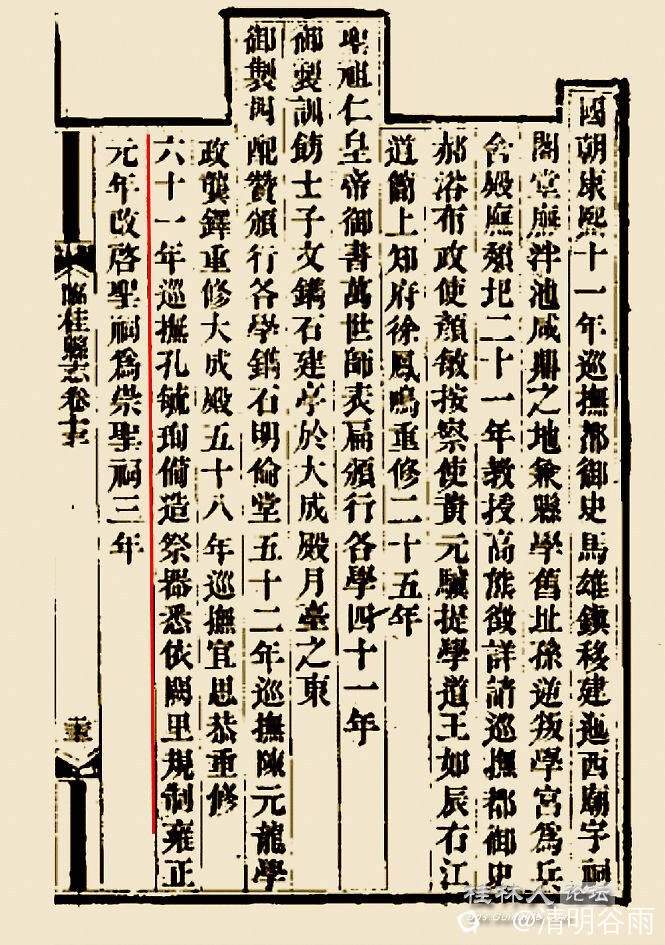 國朝康熙十一年巡撫都御史馬雄鎮移建迤西廟宇祠
閣堂廡泮池咸鼎之地兼縣學舊址孫逆叛學宮為兵
舍殿廡頹圯二十一年教授高熊徵詳請巡撫都御史
郝浴布政使顏敏按察使黃元驥提學道王如辰右江
道簡上知府徐鳳鳴重修二十五年
聖祖仁皇帝御書萬世師表扁頒行各學四十一年
御製訓飭士子文鐫石建亭於大成殿月臺之東
御製四配贊頒行各學鐫石明倫堂五十二年巡撫陳元龍學
政龔鐸重修大成殿五十八年巡撫宜思恭重修
六十一年巡撫孔毓珣備造祭器悉依闕里規制雍正
元年改啓聖祠為崇聖祠三年
臨桂縣志卷十
桂林人论坛
@清明谷雨